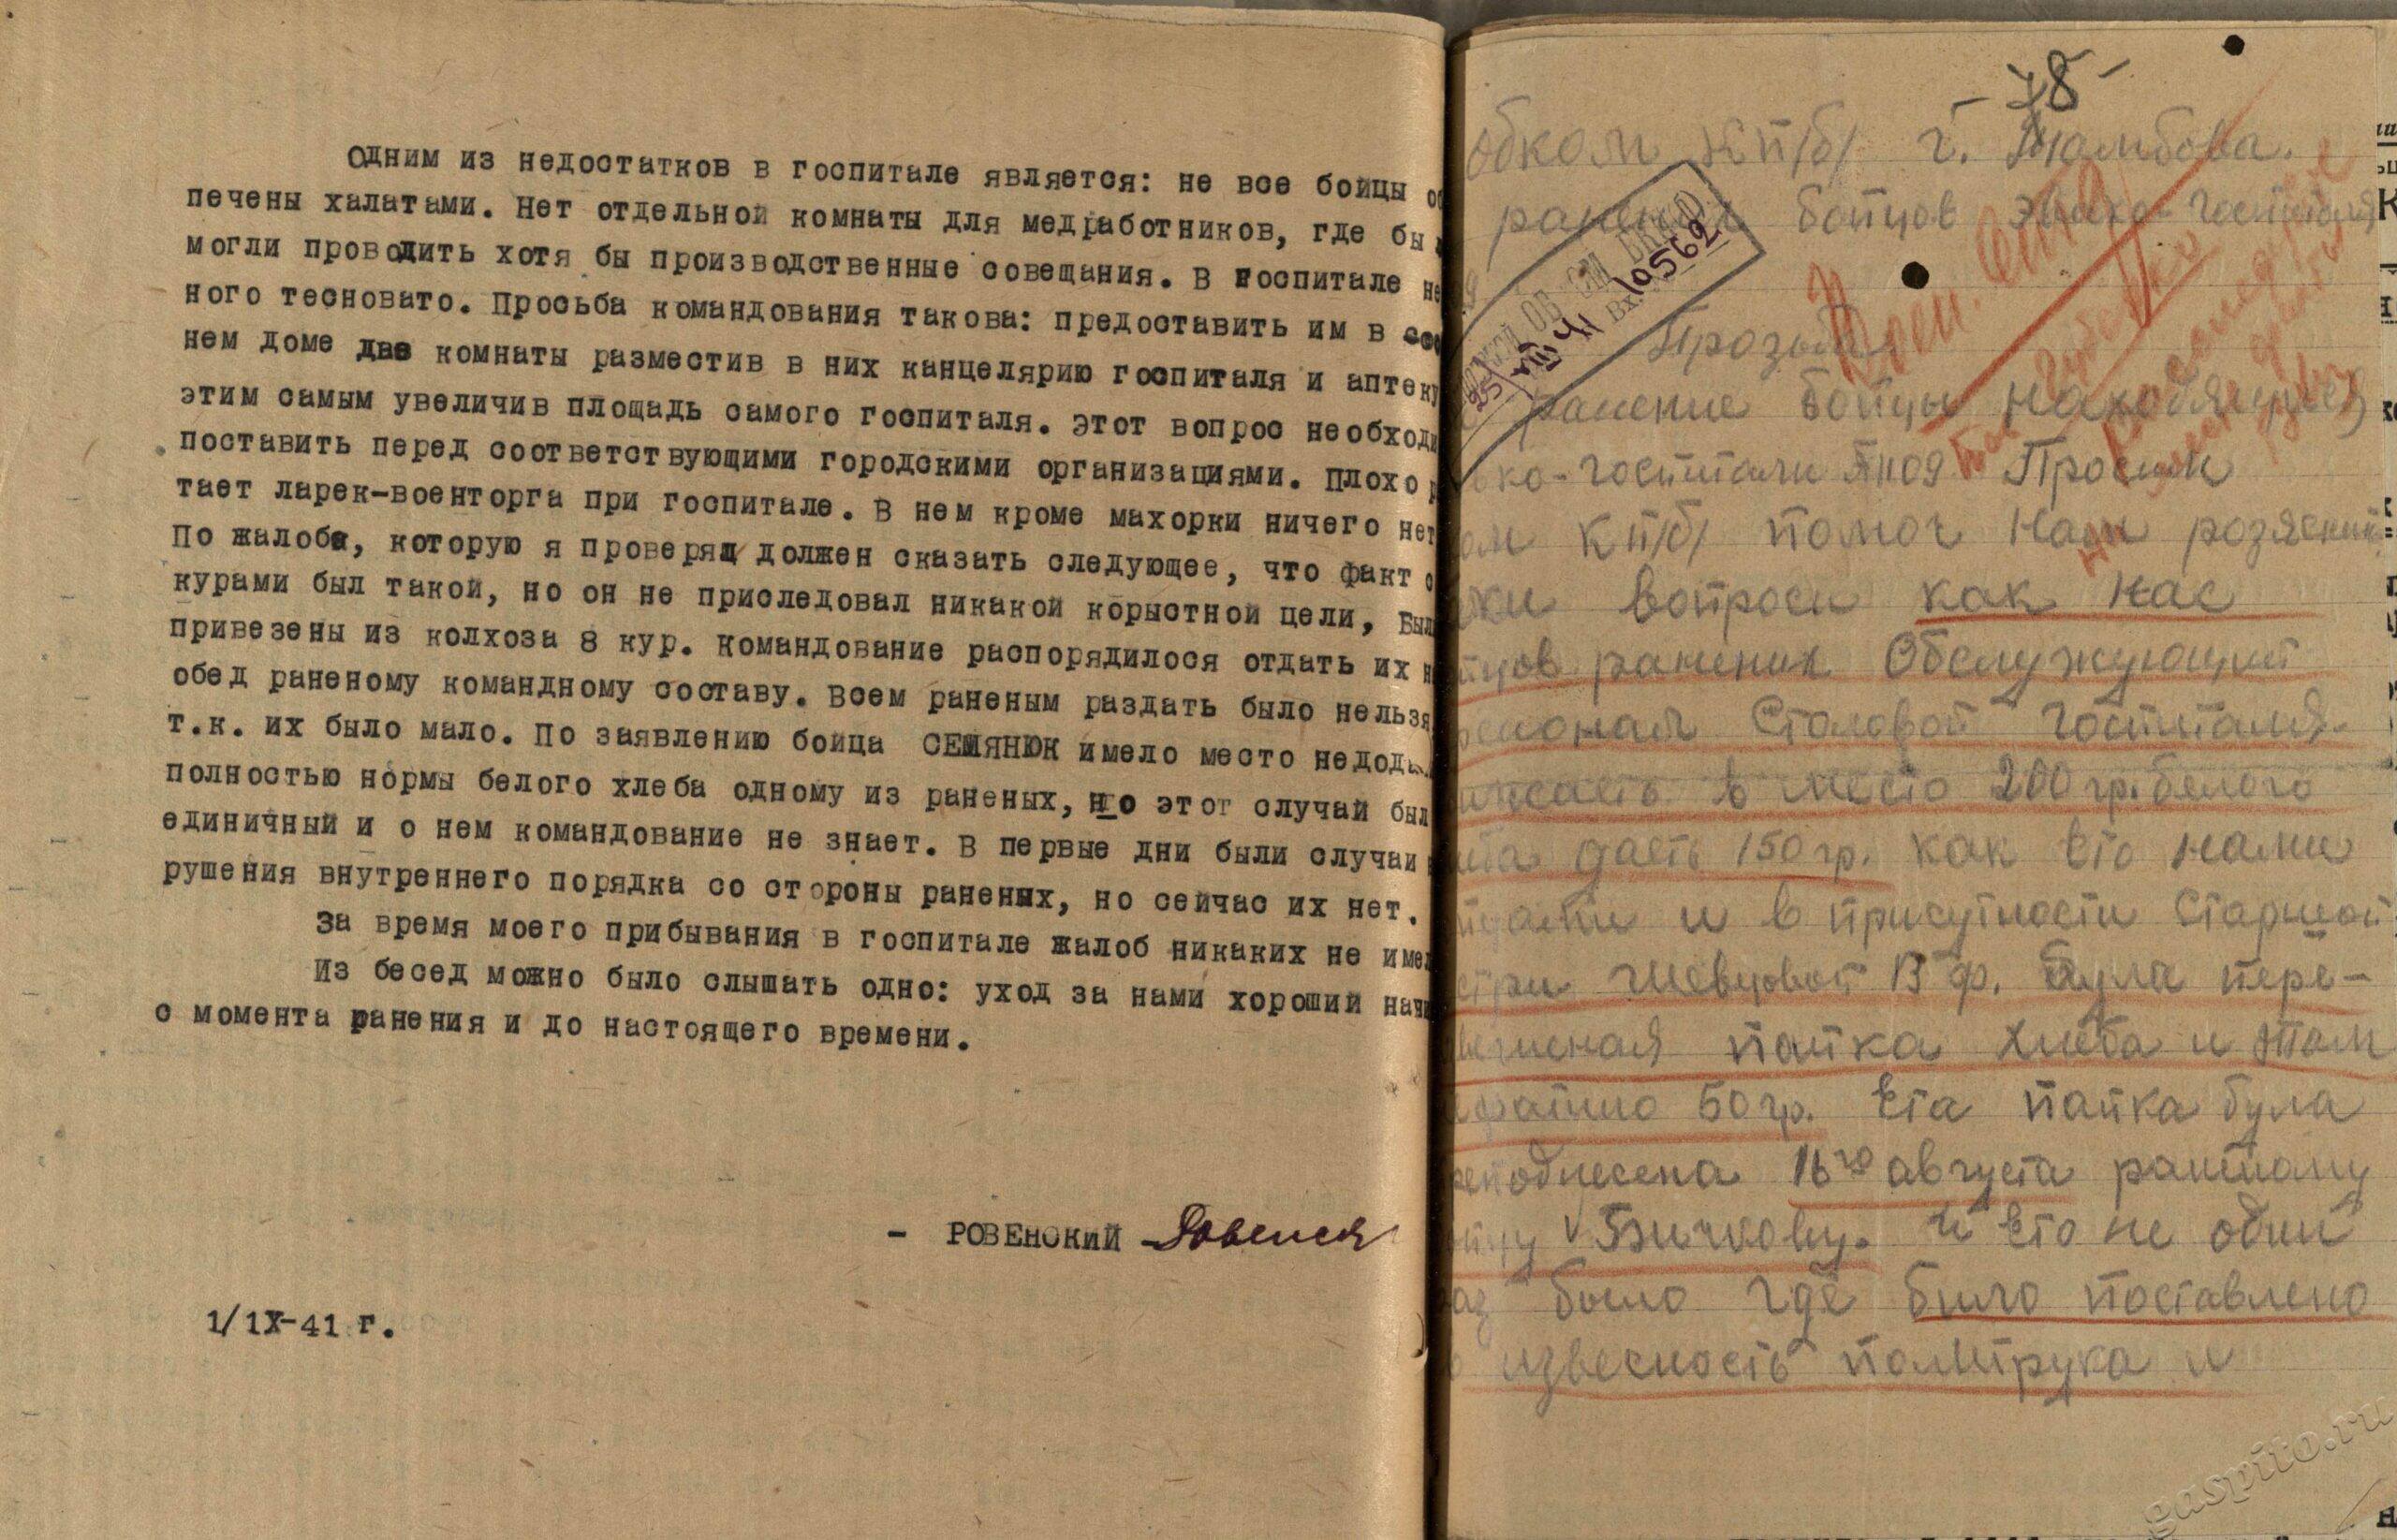 Одним из недостатков в госпитале является: не все бойцы об
печены халатами. Нет отдельной комнаты для медработников, где бы
могли проводить хотя бы производственные совещания. В госпитале не
ного тесновато. Просьба командования такова: предоставить им в сос
нем доме две комнаты разместив в них канцелярию госпиталя и аптеку
этим самым увеличив площадь самого госпиталя. Этот вопрос необходи
поставить перед соответствующими городскими организациями. Плохо р
тает ларек-военторга при госпитале. В нем кроме махорки ничего нет
По жалобе, которую я проверял должен сказать следующее, что факт с
курами был такой, но он не приследовал никакой корыстной цели, Был
привезены из колхоза 8 кур. Командование распорядилося отдать их н
обед раненому командному составу. Всем раненым раздать было нельзя
т.к. их было мало. По заявлению бойца СЕМЯНЮК имело место недода
полностью нормы белого хлеба одному из раненых, но этот случай был
единичный и о нем командование не знает. В первые дни были случаи
рушения внутреннего порядка со стороны раненых, но сейчас их нет.
За время моего прибывания в госпитале жалоб никаких не имел
Из бесед можно было слышать одно: уход за нами хороший начи
с момента ранения и до настоящего времени.
- РОВЕНСКИЙ
1/IX-41 г.
- 78 -
Обком КП/б/ г. Тамбова.
раненых бойцов эвако-госпиталя
Вх. 10562
25 VIII 41
Прозьба
раненые бойцы находящиеся
ко-госпитали №1109 Просим
ом КП/б/ помоч нам розяснить
жи вопроси как нас
йцов раненых Обслужующий
рсонал Столовой госпиталя.
в место 200 гр. белого
дасть 150 гр. как ето нами
и в присутности Старшой
стри Шевцовой В ф. Була пере-
вешеная пайка хлеба и там
50 гр. Ета пайка була
реподнесена 16го августа раненому
йцу Бичкову. И ето не один
аз было где било поставлено
известность политрука и
gaspito.ru